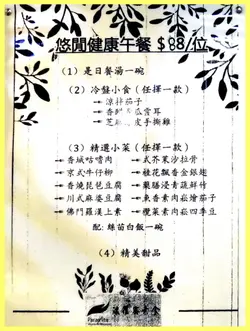 悠閒健康午餐 $88/位
(1) 是日餐湯一碗
(2) 冷盤小食 (任擇一款)
涼拌茄子
皮手撕雞
(3) 精選小菜 (任擇一款)
香城咕嚕肉
京式牛仔柳
香燒琵琶豆腐
川式麻婆豆腐
佛門羅漢上素
式芥菜沙拉骨
桂花瓢香金銀翅
藥膳浸青蔬鮮竹
魚香素肉崧燴茄子
欖菜素肉崧四季豆
配: 絲苗白飯一碗
(4) 精美甜品